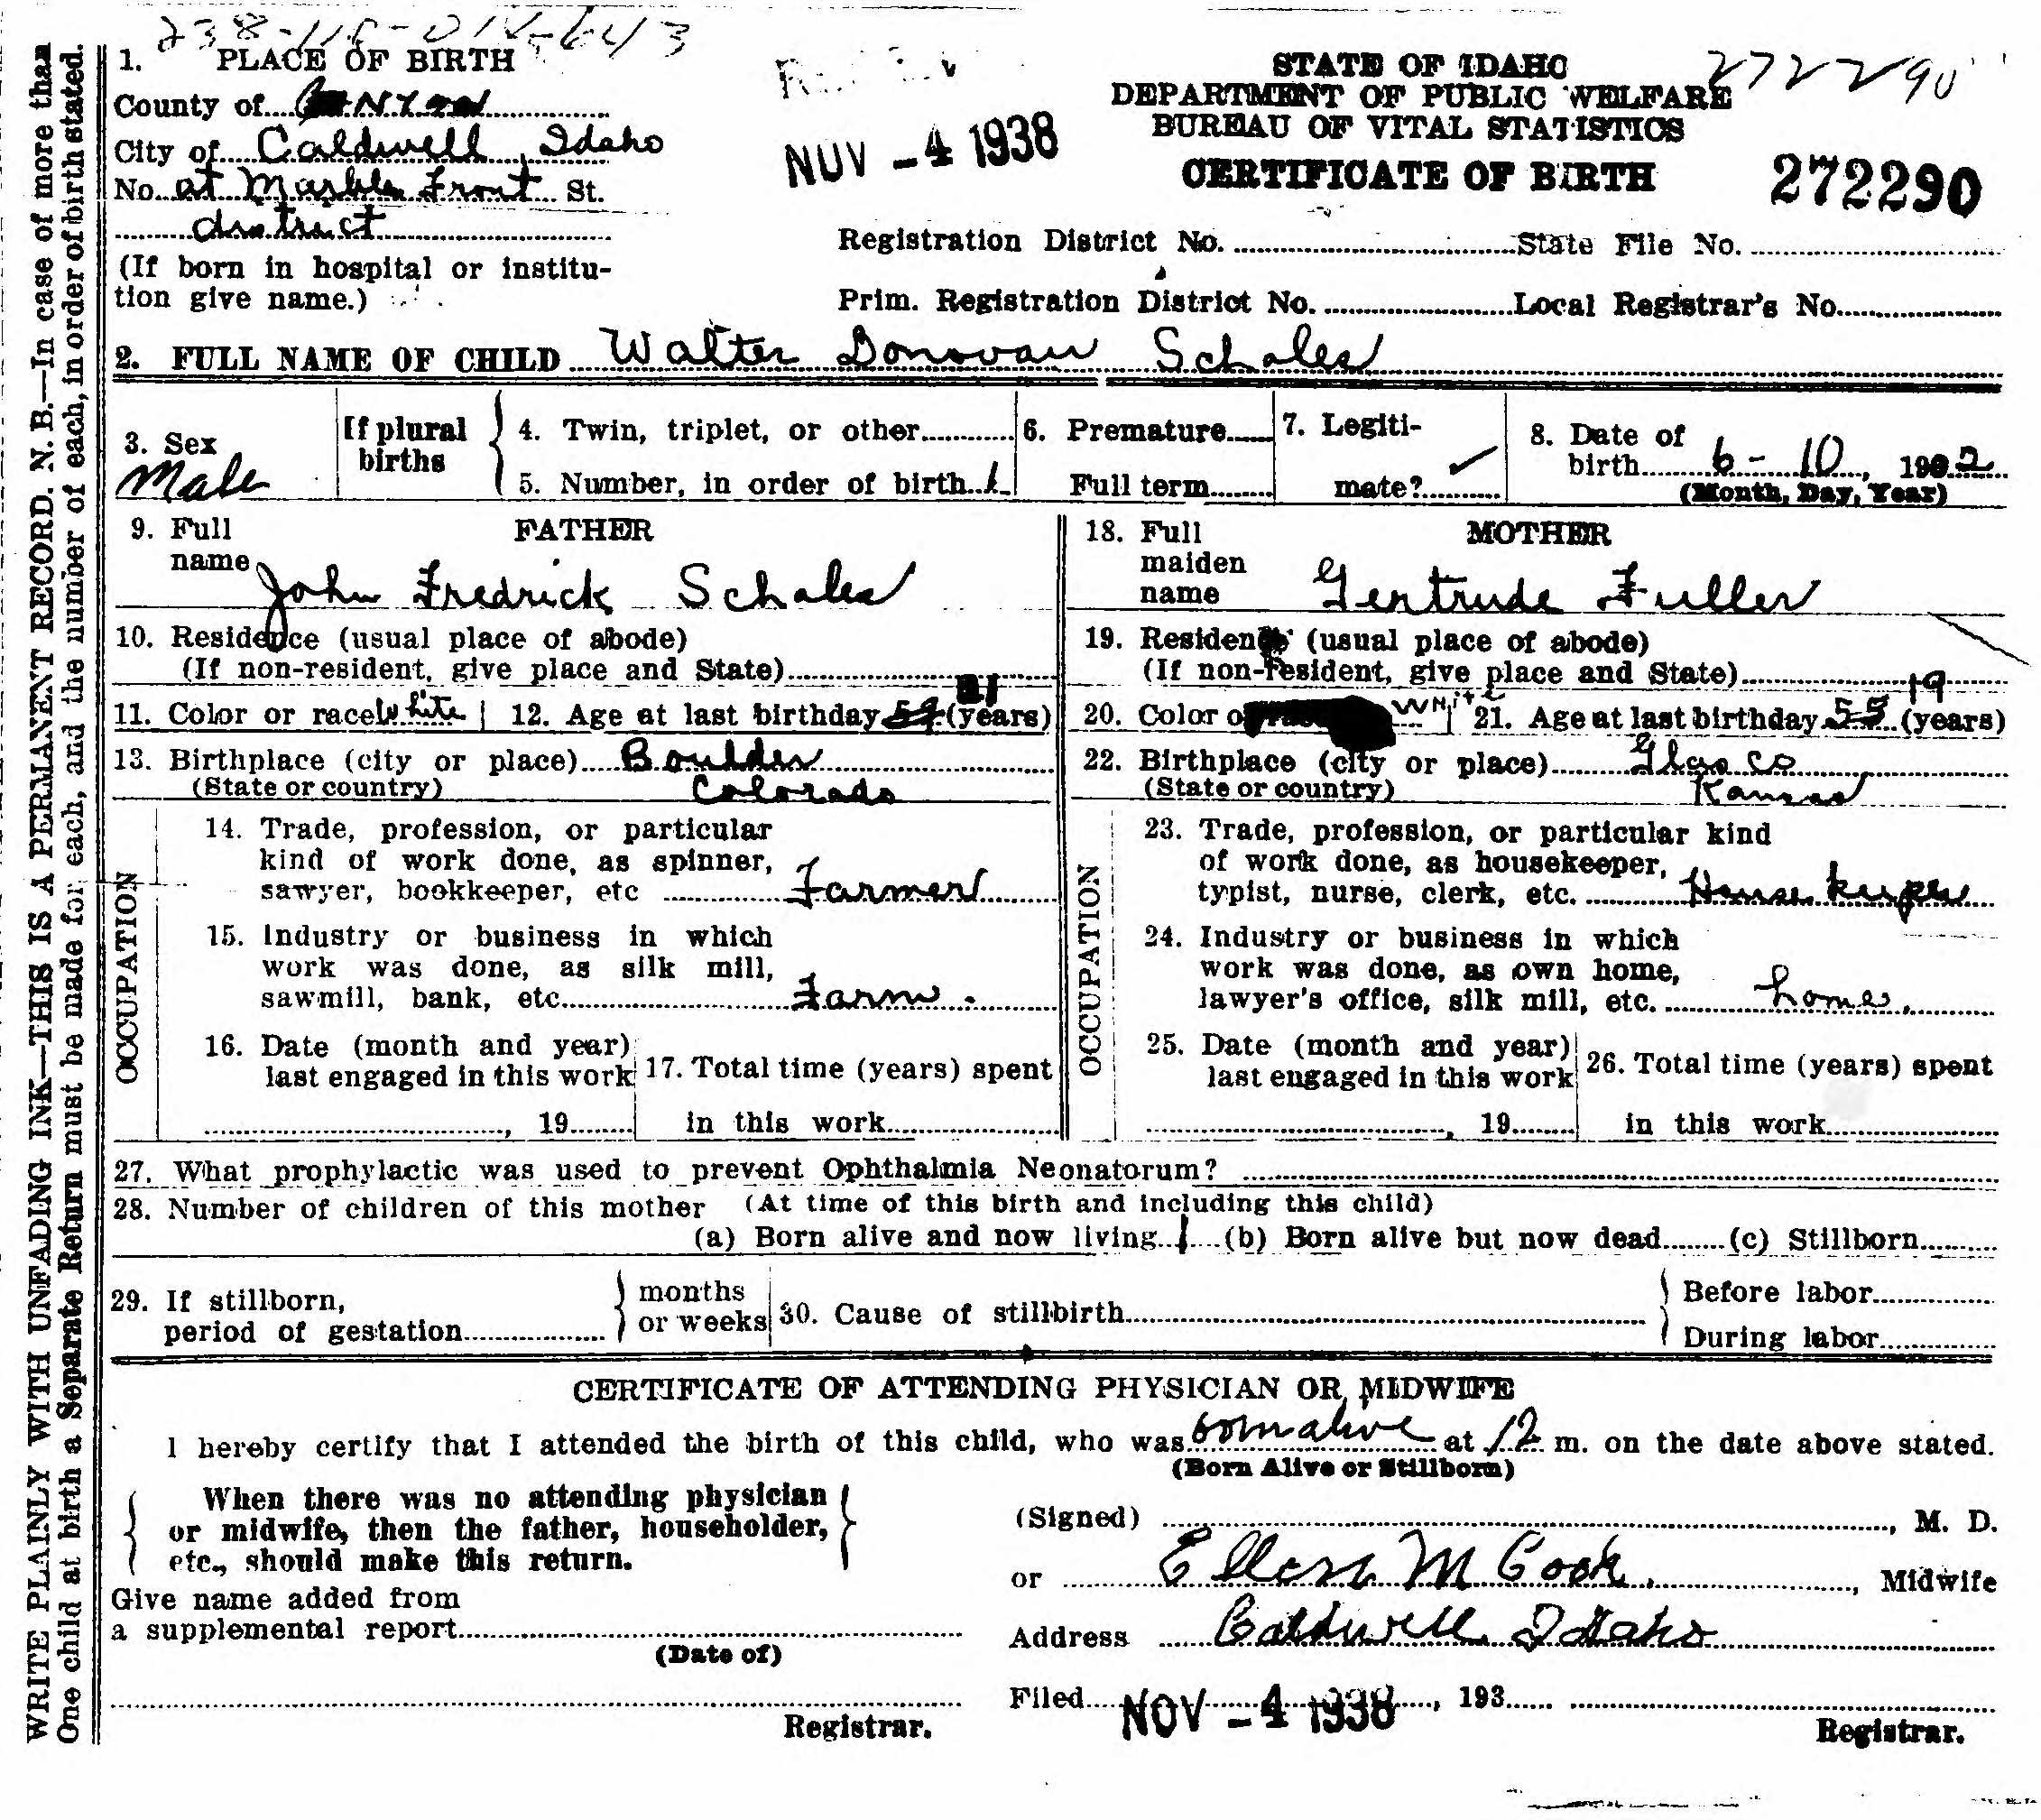 1. PLACE OF BIRTH
County of
City of Caldwell, Idaho
No. at Marble Front St.
district
(If born in hospital or institu-
tion give name.)
NOV -4 1938
STATE OF IDAHO
DEPARTMENT OF PUBLIC WELFARE
BUREAU OF VITAL STATISTICS
CERTIFICATE OF BIRTH
272290
272290
Registration District No. State File No.
Prim. Registration District No. Local Registrar's No.
2. FULL NAME OF CHILD Walter Donovan Schales
3. Sex
Male
If plural births
4. Twin, triplet, or other
5. Number, in order of birth 1
6. Premature
Full term
7. Legiti-
mate? ✓
8. Date of
birth 6-10, 1902
(Month, Day, Year)
9. Full name FATHER
John Fredrick Schales
10. Residence (usual place of abode)
(If non-resident, give place and State)
11. Color or race White 12. Age at last birthday 21 (years)
13. Birthplace (city or place) Boulder
(State or country) Colorado
OCCUPATION
14. Trade, profession, or particular
kind of work done, as spinner,
sawyer, bookkeeper, etc Farmer
15. Industry or business in which
work was done, as silk mill,
sawmill, bank, etc. Farm.
16. Date (month and year)
last engaged in this work
, 19
17. Total time (years) spent
in this work
18. Full maiden name MOTHER
Gertrude Fuller
19. Residence (usual place of abode)
(If non-resident, give place and State)
20. Color or race White 21. Age at last birthday 55 19 (years)
22. Birthplace (city or place) Glasco
(State or country) Kansas
OCCUPATION
23. Trade, profession, or particular kind
of work done, as housekeeper,
typist, nurse, clerk, etc. House keeper
24. Industry or business in which
work was done, as own home,
lawyer's office, silk mill, etc. home.
25. Date (month and year)
last engaged in this work
, 19
26. Total time (years) spent
in this work
27. What prophylactic was used to prevent Ophthalmia Neonatorum?
28. Number of children of this mother (At time of this birth and including this child)
(a) Born alive and now living 1 (b) Born alive but now dead (c) Stillborn
29. If stillborn,
period of gestation
months
or weeks
30. Cause of stillbirth
Before labor
During labor
CERTIFICATE OF ATTENDING PHYSICIAN OR MIDWIFE
I hereby certify that I attended the birth of this child, who was born alive at 12 m. on the date above stated.
(Born Alive or Stillborn)
When there was no attending physician
or midwife, then the father, householder,
etc., should make this return.
Give name added from
a supplemental report
(Date of)
Registrar.
(Signed) , M. D.
or Ellen M Cook, Midwife
Address Caldwell Idaho
Filed NOV -4 1938, 193
Registrar.
WRITE PLAINLY WITH UNFADING INK—THIS IS A PERMANENT RECORD. N. B.—In case of more than
One child at birth a Separate Return must be made for each, and the number of each, in order of birth stated.